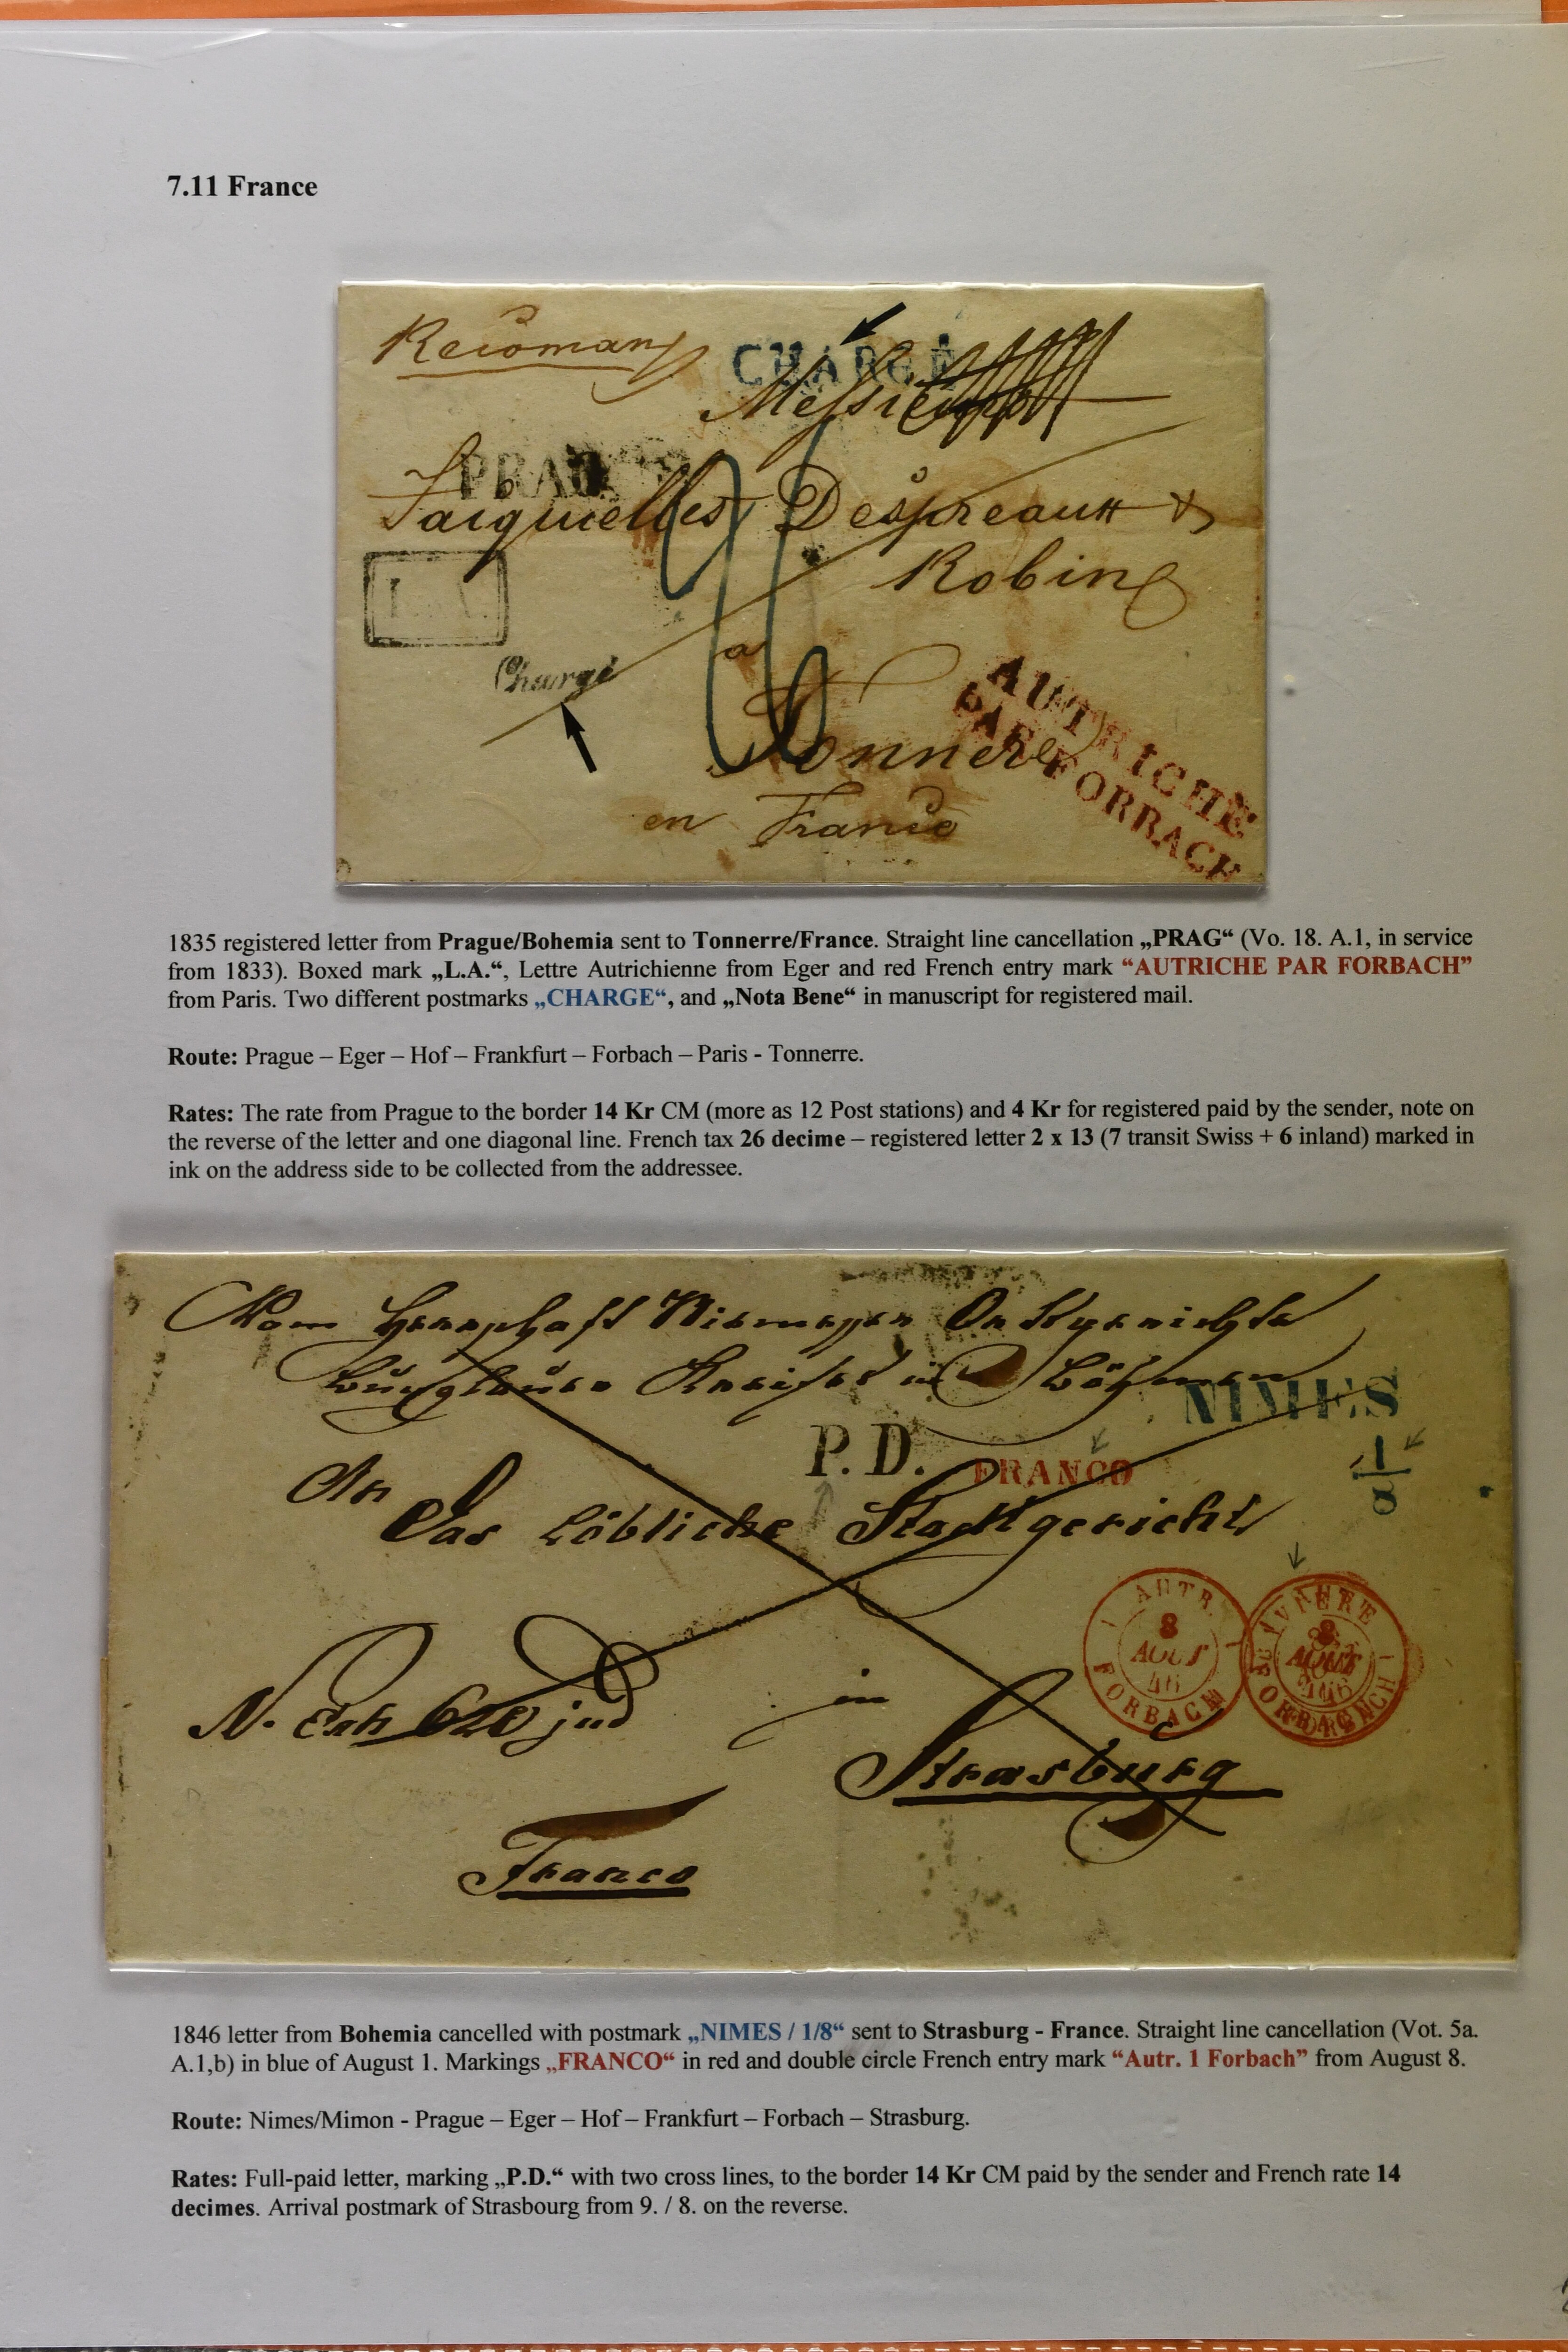 7.11 France
Recoman
CHARGÉ
Messieurs
PRAG
Jacquielles Despreaux &
Robin
L.A.
Chargé
a
Tonnere
AUTRICHE
PAR FORBACH
en France
1835 registered letter from Prague/Bohemia sent to Tonnerre/France. Straight line cancellation „PRAG“ (Vo. 18. A.1, in service
from 1833). Boxed mark „L.A.“, Lettre Autrichienne from Eger and red French entry mark “AUTRICHE PAR FORBACH”
from Paris. Two different postmarks „CHARGE“, and „Nota Bene“ in manuscript for registered mail.
Route: Prague – Eger – Hof – Frankfurt – Forbach – Paris - Tonnerre.
Rates: The rate from Prague to the border 14 Kr CM (more as 12 Post stations) and 4 Kr for registered paid by the sender, note on
the reverse of the letter and one diagonal line. French tax 26 decime – registered letter 2 x 13 (7 transit Swiss + 6 inland) marked in
ink on the address side to be collected from the addressee.
Vom Herrschaft
in Böhmen
NIMES
P.D.
FRANCO
An
Das Löbliche Stadtgericht
AUTR.
8
AOUT
46
FORBACH
8
AOUT
in
Strasburg
Franco
1846 letter from Bohemia cancelled with postmark „NIMES / 1/8“ sent to Strasburg - France. Straight line cancellation (Vot. 5a.
A.1,b) in blue of August 1. Markings „FRANCO“ in red and double circle French entry mark “Autr. 1 Forbach” from August 8.
Route: Nimes/Mimon - Prague – Eger – Hof – Frankfurt – Forbach – Strasburg.
Rates: Full-paid letter, marking „P.D.“ with two cross lines, to the border 14 Kr CM paid by the sender and French rate 14
decimes. Arrival postmark of Strasbourg from 9. / 8. on the reverse.